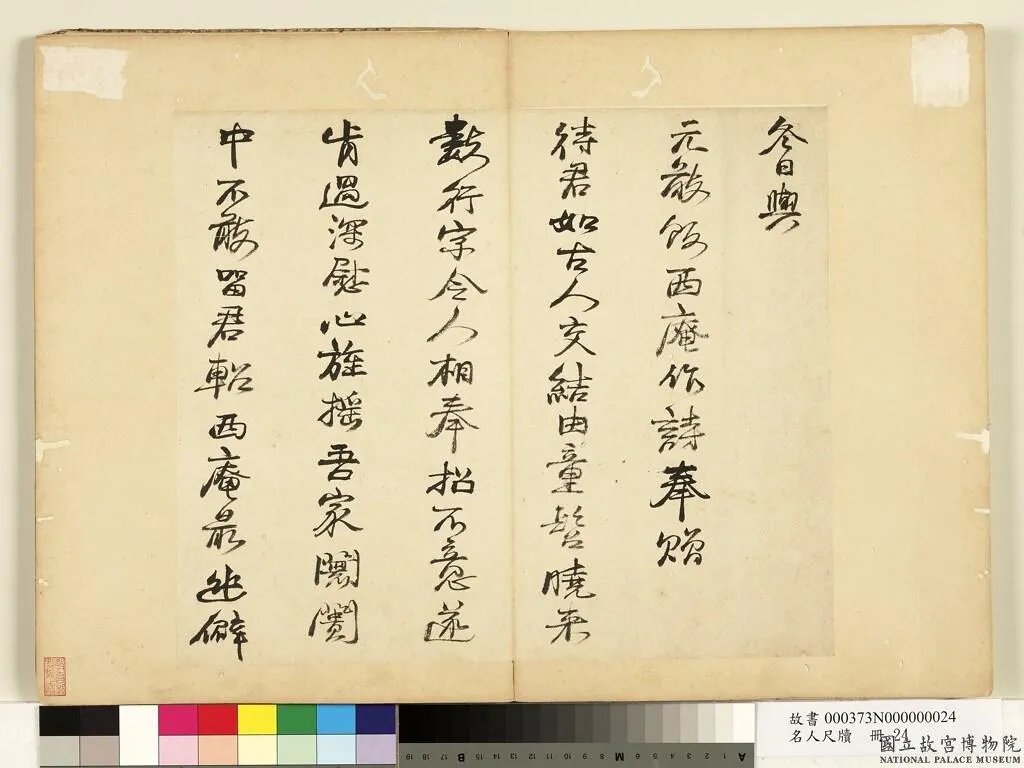 冬日與
元嚴飯西庵作詩奉贈
待君如古人交結由童髫曉來
數行字令人相奉招不意遂
肯過深慰心旌搖吾家闤闠
中不敢留君軺西庵最幽僻
故書 000373N000000024
名人尺牘 冊 24
國立故宮博物院
NATIONAL PALACE MUSEUM